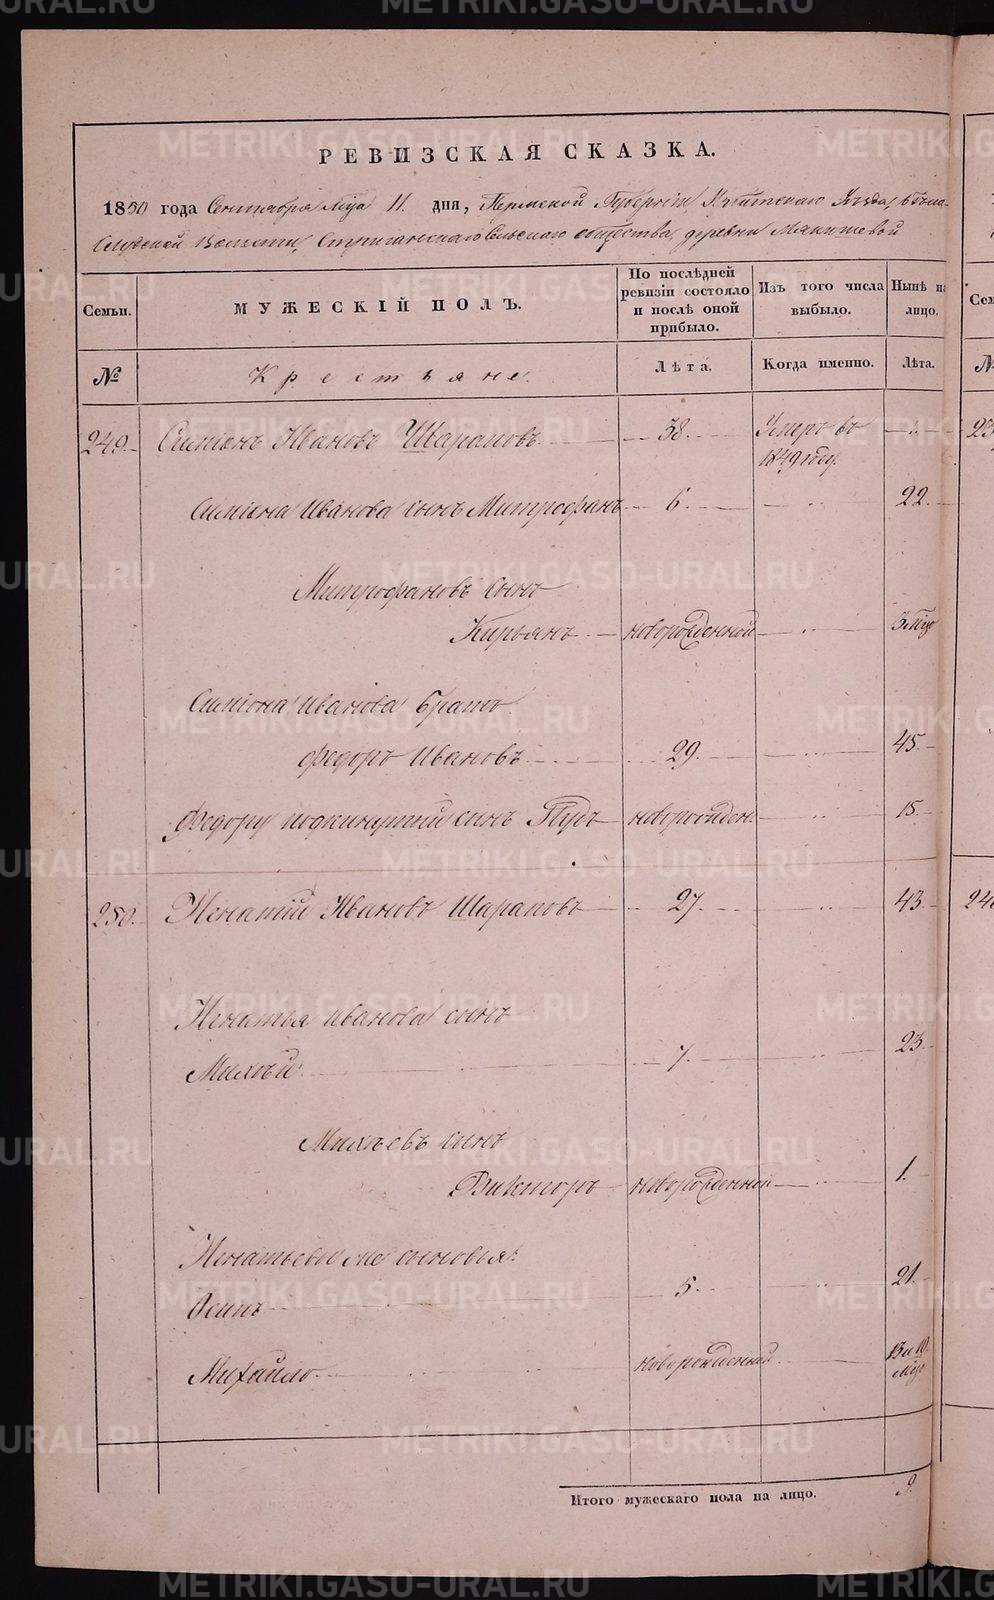 РЕВИЗСКАЯ СКАЗКА.
1850 года Сентября мца 11. дня, Пермской Губерніи, Ирбитскаго Уѣзда, Бѣло-
слудской Волости, Стриганскаго Сельскаго общества деревни Мякишевой
Семьи. МУЖЕСКІЙ ПОЛЪ. По послѣдней ревизіи состояло и послѣ оной прибыло. Изъ того числа выбыло. Нынѣ на лицо.
№ Крестьяне. Лѣта. Когда именно. Лѣта.
249. Симіонъ Ивановъ Шараповъ 38. Умеръ въ
1849 году.
Симіона Иванова сынъ Митрофанъ 6. 22.
Митрофановъ сынъ
Кирьянъ новорожденной 5 Мцо
Симіона Иванова братъ
Федоръ Ивановъ 29. 45.
Федору подкинутый сынъ Тудъ новорожден. 15.
250. Игнатій Ивановъ Шараповъ 27. 43.
Игнатья Иванова сынъ
Михѣй 7. 23.
Михѣевъ сынъ
Викторъ новорожденной 1.
Игнатьевы же сыновья:
Осипъ 5. 21.
Михайло новорожденный 13 и 10.
Мцо
Итого мужескаго пола на лицо. 9.
METRIKI.GASO-URAL.RU